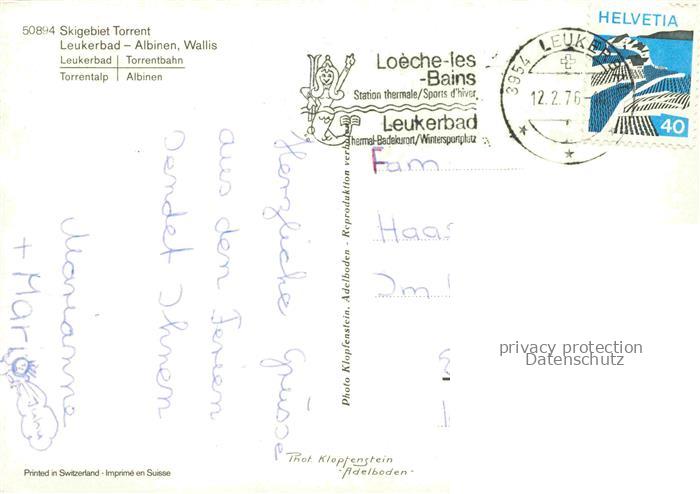 50894 Skigebiet Torrent
Leukerbad – Albinen, Wallis
Leukerbad | Torrentbahn
Torrentalp | Albinen
Loèche-les
-Bains
Station thermale/Sports d'hiver
Leukerbad
Thermal-Badekurort/Wintersportplatz
3954 LEUKERBAD
12.2.76
HELVETIA
40
Herzliche Grüsse
aus den Ferien
sendet Ihnen
Marianne
+ Mario
Juhu
Fam
Haas
Im
Photo Klopfenstein, Adelboden - Reproduktion verboten
privacy protection
Datenschutz
Phot. Klopfenstein
-Adelboden-
Printed in Switzerland - Imprimé en Suisse